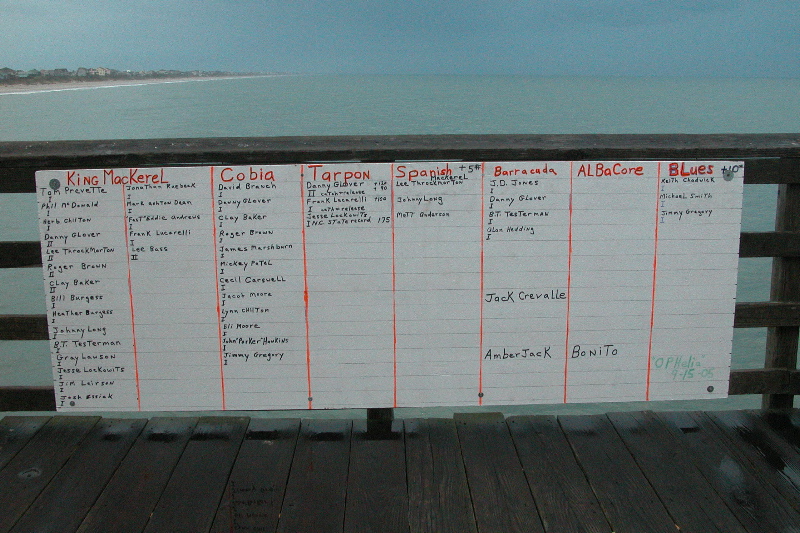 King Mackerel
Tom Prevatte
I
Phil McDonald
I
Herb Chilton
I
Danny Glover
II
Lee Throckmorton
II
Roger Brown
II
Clay Baker
I
Bill Burgess
I
Heather Burgess
I
Johnny Long
I
B.T. Testerman
I
Gray Lawson
I
Jesse Lockowits
I
Jim Lairson
I
Josh Essick
I
Jonathan Roebuck
I
Mark Ashton Dean
I
"Fast" Eddie Andrews
I
Frank Lucarelli
I
Lee Bass
II
Cobia
David Branch
I
Danny Glover
I
Clay Baker
I
Roger Brown
I
James Marshburn
I
Mickey Patel
I
Cecil Carswell
I
Jacob Moore
I
Lynn Chilton
I
Eli Moore
I
John "Porker" Hawkins
I
Jimmy Gregory
I
Tarpon
Danny Glover
II catch+release
Frank Lucarelli
I catch+release
Jesse Lockowits
I N.C. State record 175
Spanish +5#
Mackerel
Lee Throckmorton
I
Johnny Long
I
Matt Anderson
Barracuda
J.D. Jones
I
Danny Glover
I
B.T. Testerman
I
Alan Hedding
I
Jack Crevalle
AmberJack
ALBaCore
BoniTo
BLues +10#
Keith Chadwick
I
Michael Smith
I
Jimmy Gregory
I
"OPHelia"
9-15-05